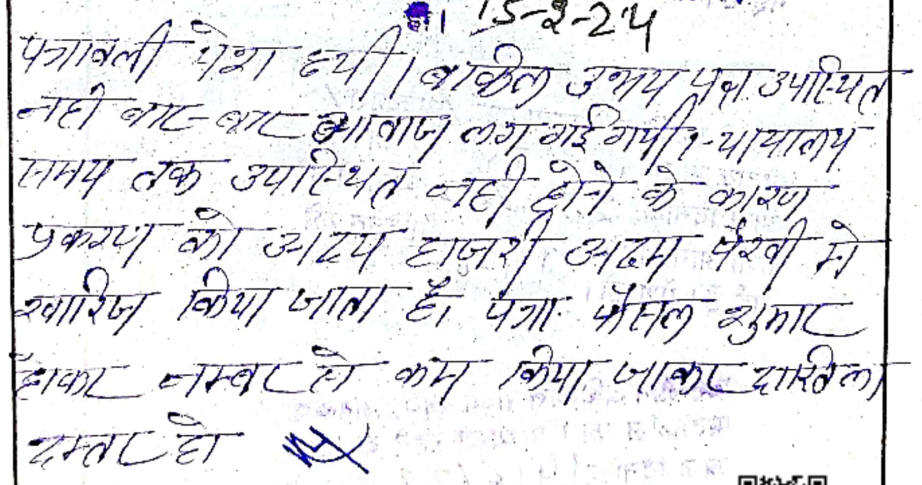 15-2-24
पत्रावली पेश हुयी। वकील उभय पक्ष उपस्थित
नही बार-बार आवाज लग गई गयी। न्यायालय
समय तक उपस्थित नही होने के कारण
प्रकरण को अदम हाजरी अदम पैरवी मे
खारिज किया जाता है। पत्रा. फैसल शुमार
होकर नम्बर से कम किया जाकर दाखिल
दफ्तर हो